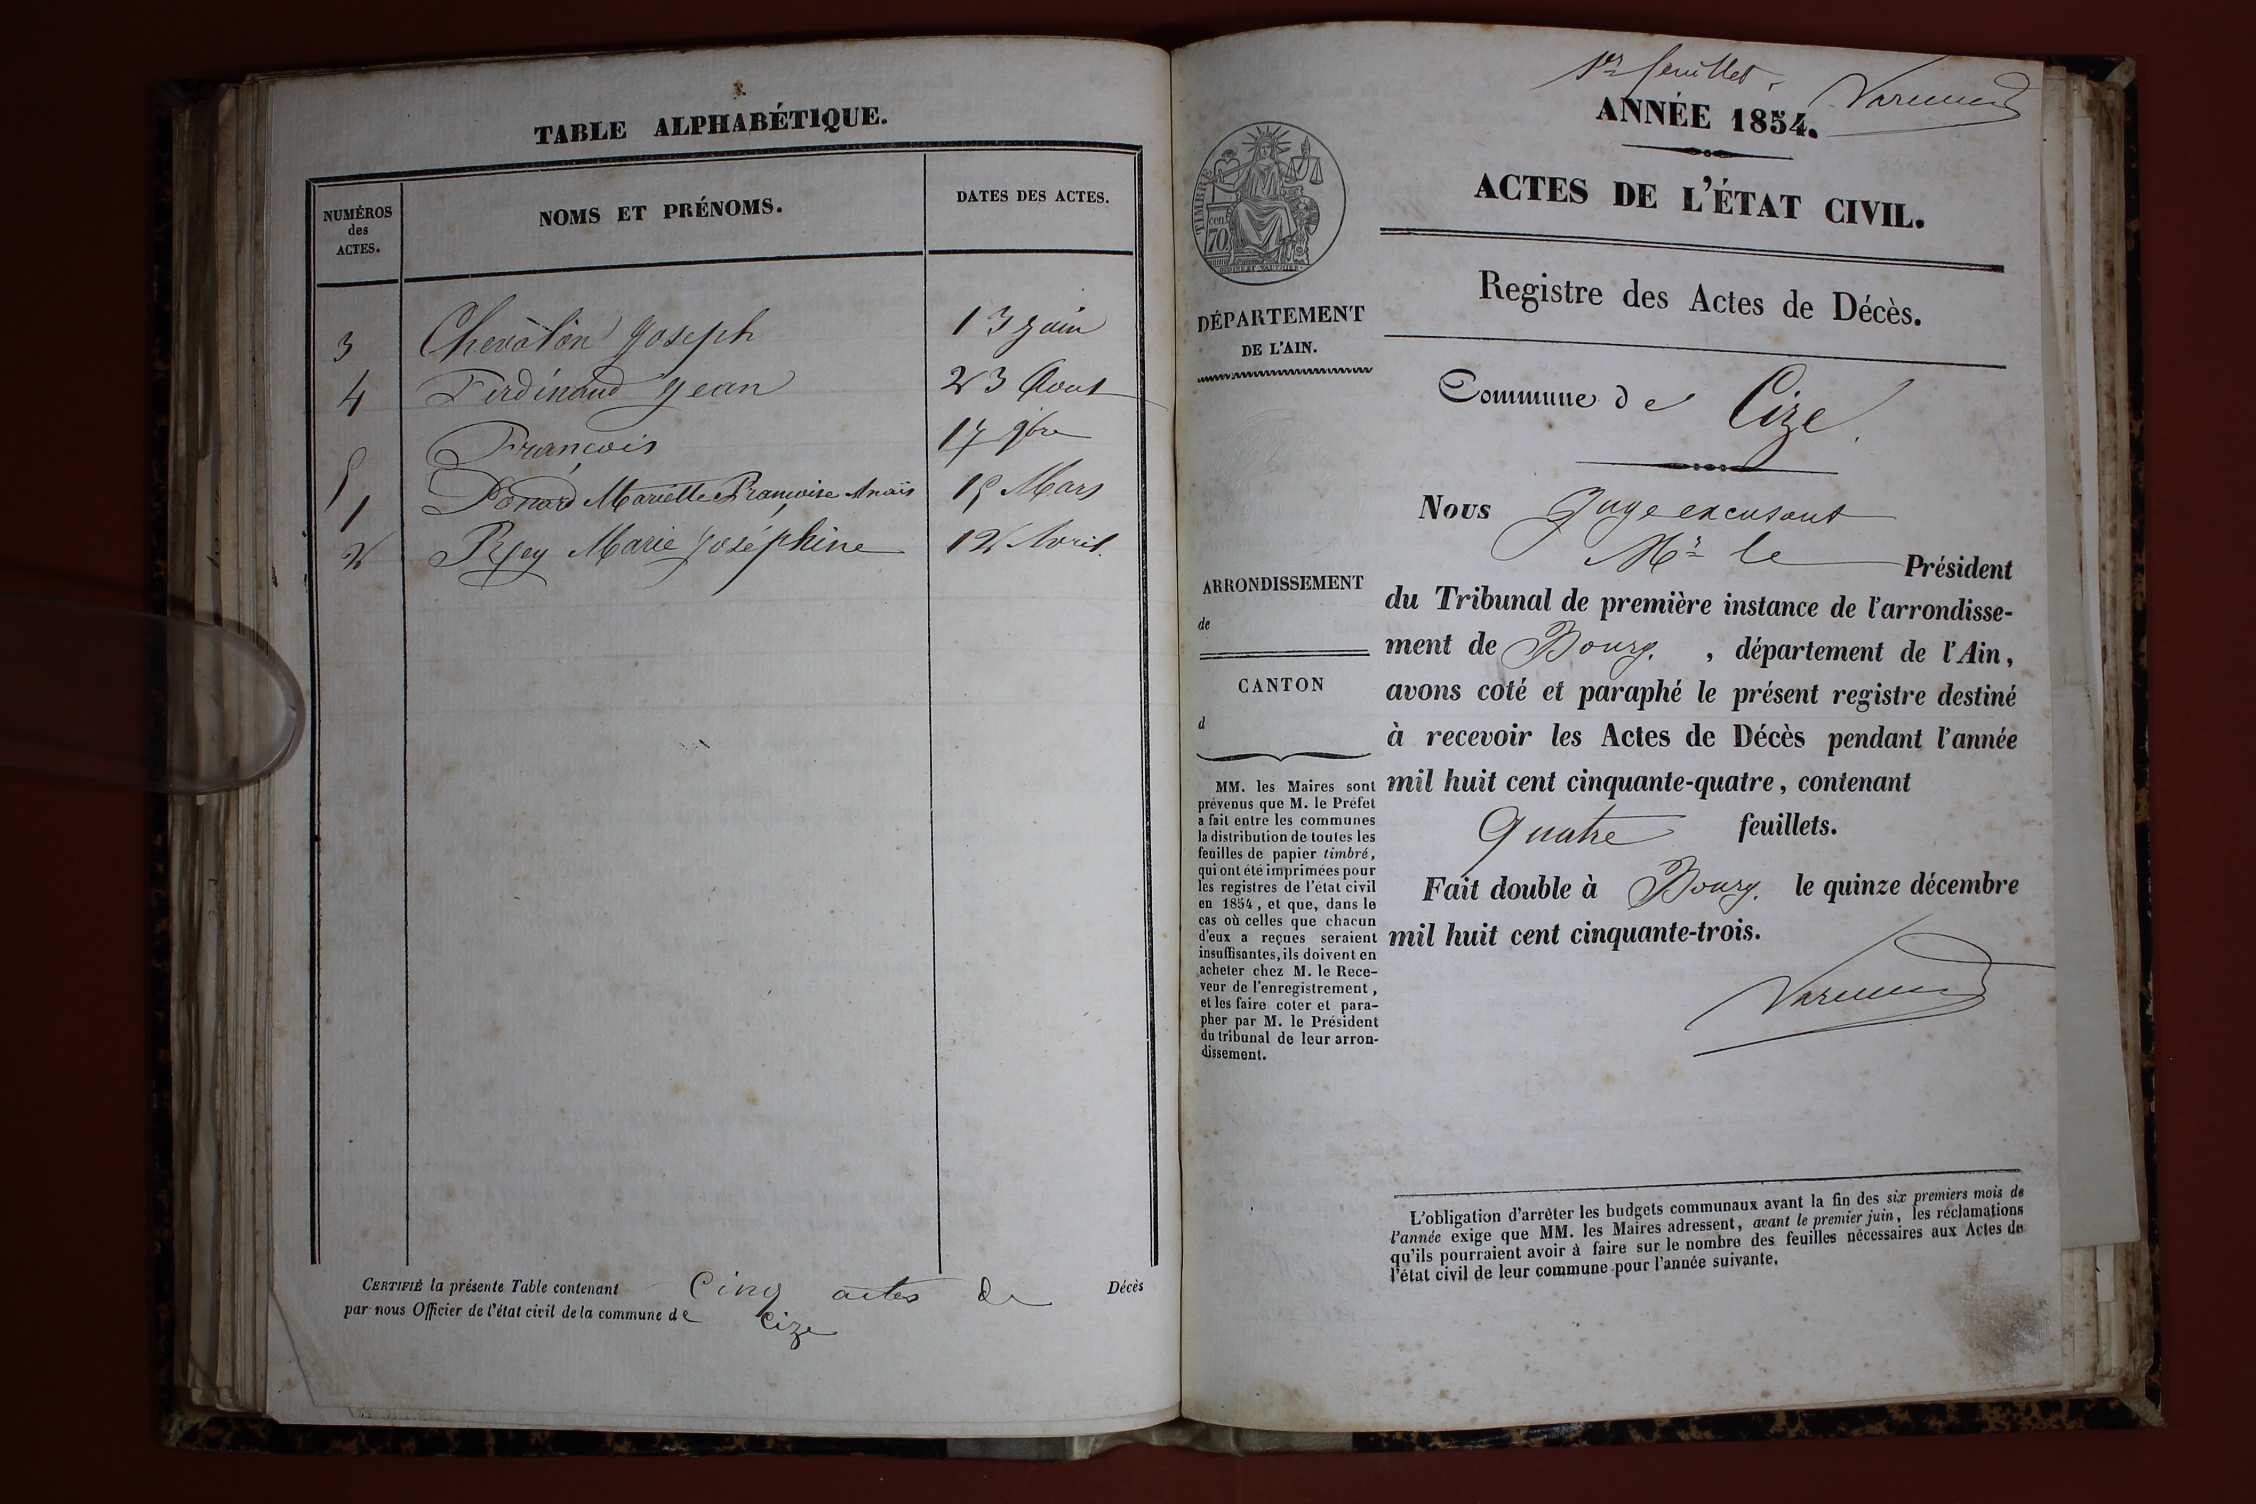 TABLE ALPHABÉTIQUE.
NUMÉROS
des
ACTES.
NOMS ET PRÉNOMS.
DATES DES ACTES.
3 Chevalon Joseph 13 juin
4 Ferdinand Jean 23 Aout
5 François 17 9bre
1 Mariette Françoise Anaïs 15 Mars
2 Rey Marie Joséphine 12 Avril.
CERTIFIÉ la présente Table contenant Cinq actes de Décès
par nous Officier de l'état civil de la commune de Cize
1er feuillet.
ANNÉE 1854.
ACTES DE L'ÉTAT CIVIL.
TIMBRE
70 cen
Registre des Actes de Décès.
DÉPARTEMENT
DE L'AIN.
Commune de Cize.
Nous Juge excusant
Mr le Président
du Tribunal de première instance de l'arrondisse-
ment de Bourg. , département de l'Ain,
avons coté et paraphé le présent registre destiné
à recevoir les Actes de Décès pendant l'année
mil huit cent cinquante-quatre, contenant
Quatre feuillets.
Fait double à Bourg. le quinze décembre
mil huit cent cinquante-trois.
ARRONDISSEMENT
de
CANTON
d
MM. les Maires sont
prévenus que M. le Préfet
a fait entre les communes
la distribution de toutes les
feuilles de papier timbré,
qui ont été imprimées pour
les registres de l'état civil
en 1854, et que, dans le
cas où celles que chacun
d'eux a reçues seraient
insuffisantes, ils doivent en
acheter chez M. le Rece-
veur de l'enregistrement,
et les faire coter et para-
pher par M. le Président
du tribunal de leur arron-
dissement.
L'obligation d'arrêter les budgets communaux avant la fin des six premiers mois de
l'année exige que MM. les Maires adressent, avant le premier juin, les réclamations
qu'ils pourraient avoir à faire sur le nombre des feuilles nécessaires aux Actes de
l'état civil de leur commune pour l'année suivante.